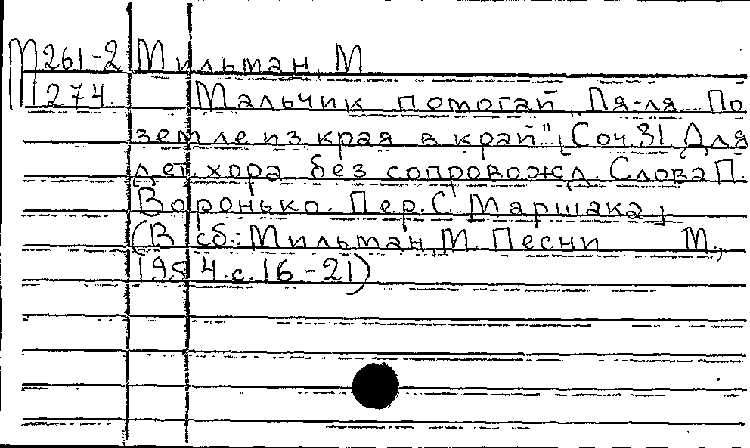 М261-2 Мильман, М
274. Мальчик помогай Ля-ля По
земле из края в край", Соч. 31 Для
дет. хора без сопровожд. Слова П.
Воронько. Пер. С Маршака,
(В сб.: Мильман, М. Песни М.,
1954. с. 16-21)